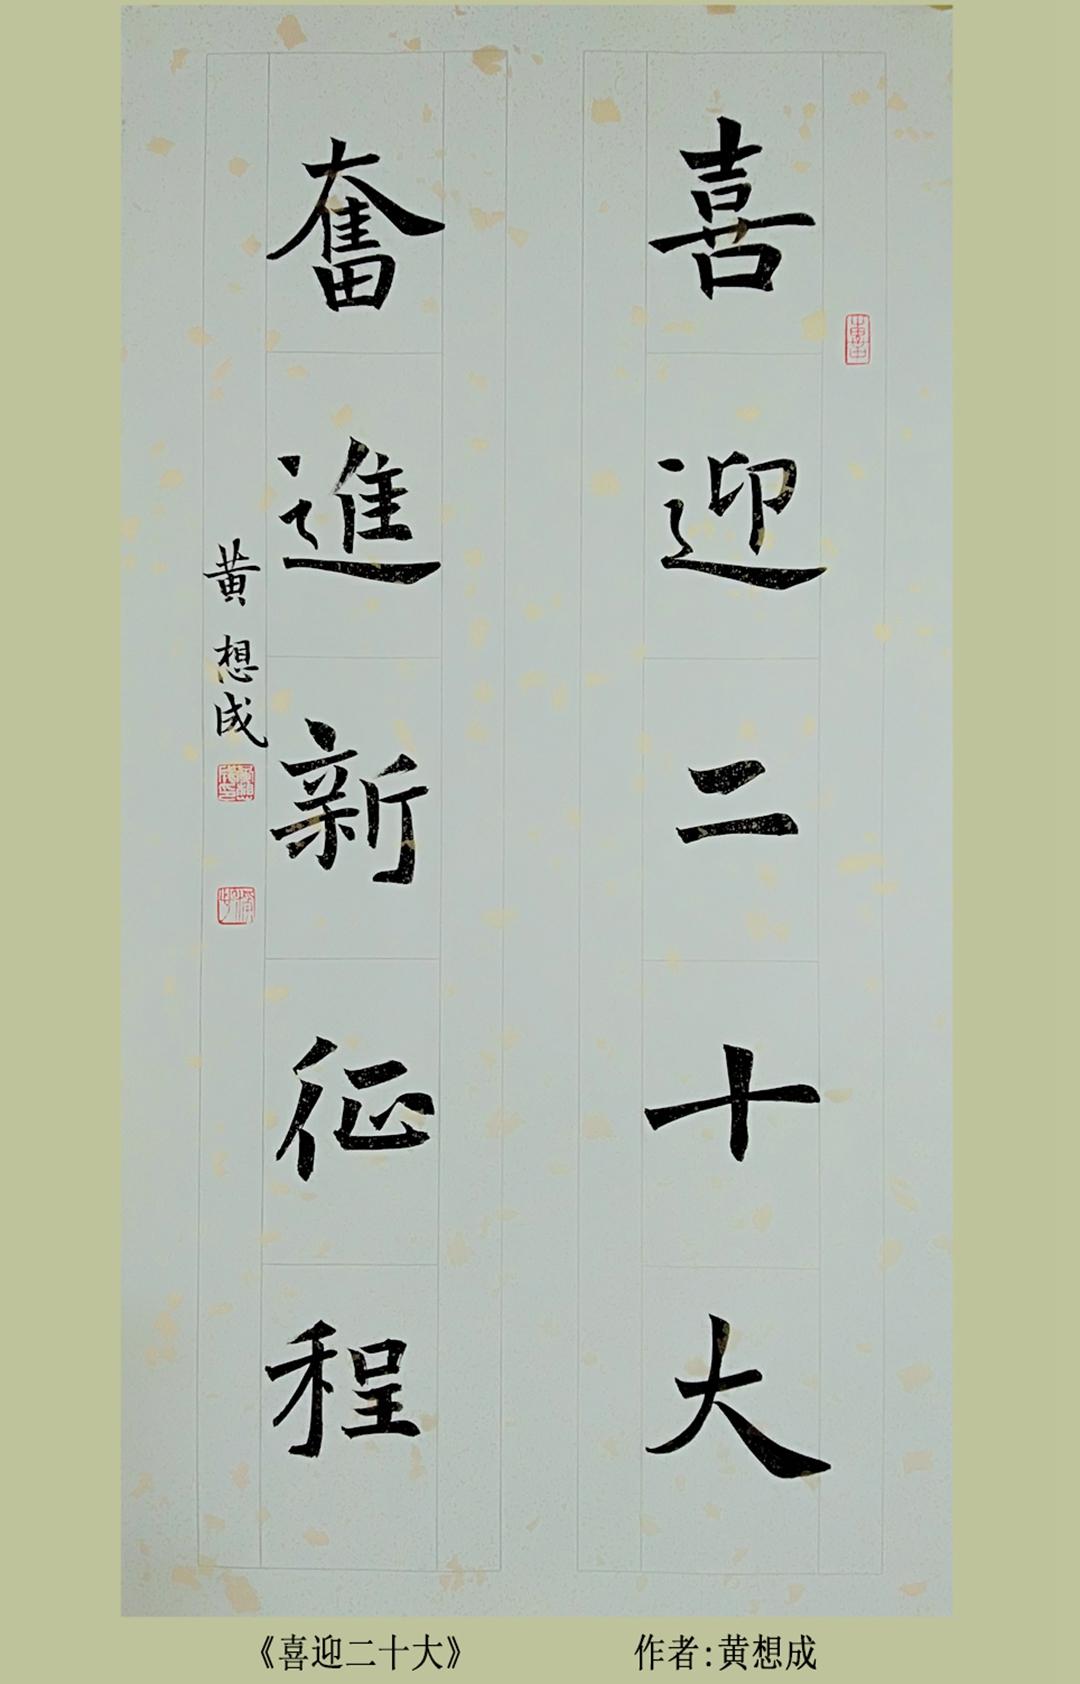 喜迎二十大
奮進新征程
黄想成
《喜迎二十大》
作者:黄想成